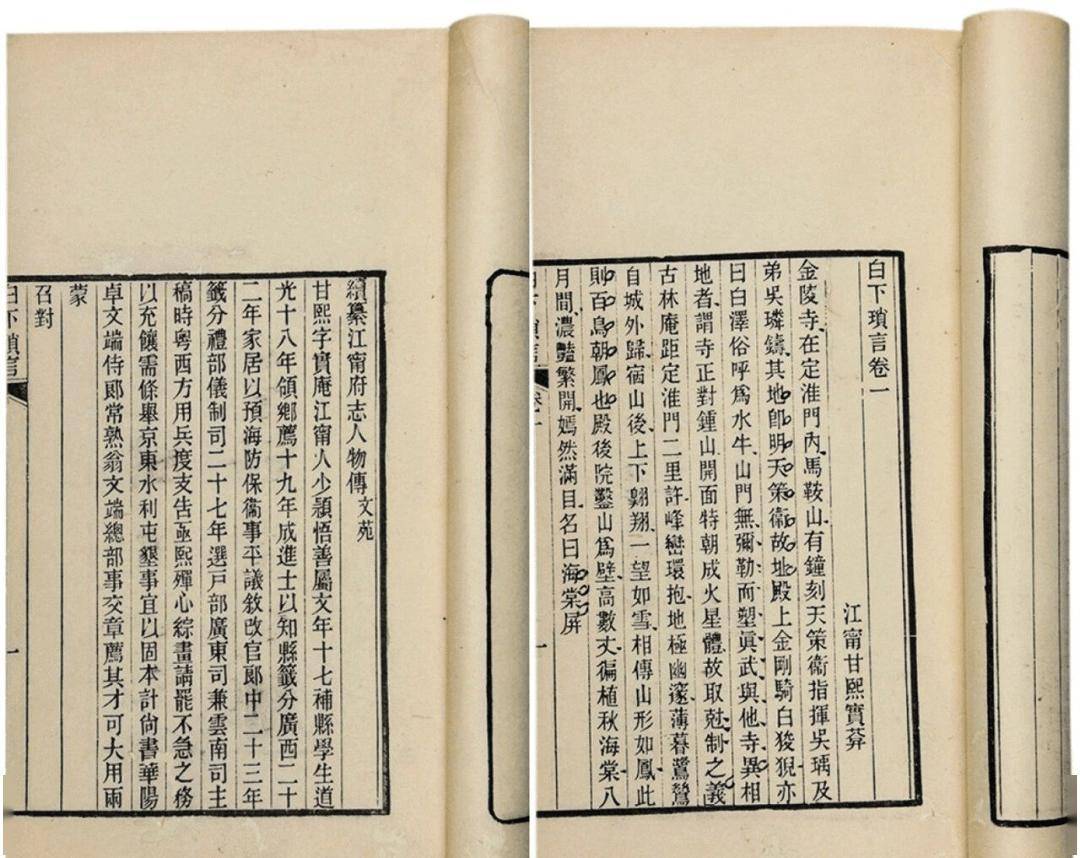 白下瑣言卷一
江甯甘熙實菴
金陵寺在定淮門內馬鞍山有鐘刻天策衞指揮吳瑀及
弟吳璘鑄其地卽明天策衞故址殿上金剛騎白狻猊亦
曰白澤俗呼爲水牛山門無彌勒而塑眞武與他寺異相
地者謂寺正對鍾山開面特朝成火星體故取尅制之義
古林庵距定淮門二里許峰巒環抱地極幽邃薄暮鷺鷥
自城外歸宿山後上下翺翔一望如雪相傳山形如鳳此
則百鳥朝鳳也殿後院鑿山爲壁高數丈徧植秋海棠八
月間濃豔繁開嫣然滿目名曰海棠屏
白下瑣言
卷一
一
續纂江甯府志人物傳文苑
甘熙字實庵江甯人少穎悟善屬文年十七補縣學生道
光十八年領鄉薦十九年成進士以知縣籤分廣西二十
二年家居以預海防保衞事平議敘改官郞中二十三年
籤分禮部儀制司二十七年選戸部廣東司兼雲南司主
稿時粵西方用兵度支告亟熙殫心綜畫請罷不急之務
以充饟需條舉京東水利屯墾事宜以固本計尙書華陽
卓文端侍郞常熟翁文端總部事交章薦其才可大用兩
蒙
召對
白下瑣言
一